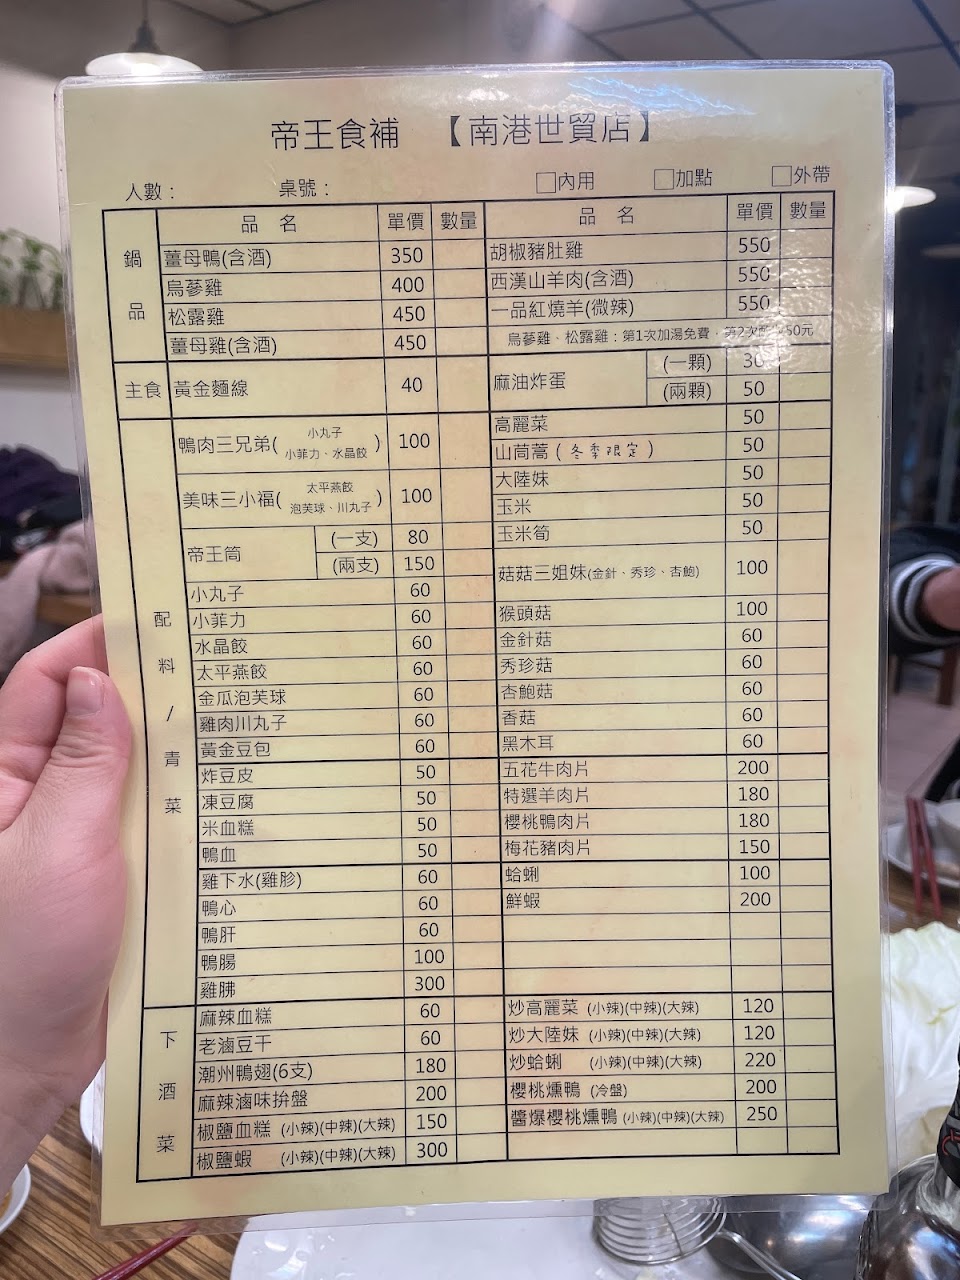 帝王食補 【南港世貿店】
人數： 桌號： □內用 □加點 □外帶
品 名 單價 數量 品 名 單價 數量
鍋品
薑母鴨(含酒) 350 胡椒豬肚雞 550
烏蔘雞 400 西漢山羊肉(含酒) 550
松露雞 450 一品紅燒羊(微辣) 550
薑母雞(含酒) 450 烏蔘雞、松露雞：第1次加湯免費，第2次 50元
主食 黃金麵線 40 麻油炸蛋 (一顆) 30
(兩顆) 50
配料/青菜
鴨肉三兄弟(小丸子 小菲力、水晶餃) 100 高麗菜 50
山茼蒿(冬季限定) 50
美味三小福(太平燕餃 泡芙球、川丸子) 100 大陸妹 50
玉米 50
帝王筒 (一支) 80 玉米筍 50
(兩支) 150 菇菇三姐妹(金針、秀珍、杏鮑) 100
小丸子 60
小菲力 60 猴頭菇 100
水晶餃 60 金針菇 60
太平燕餃 60 秀珍菇 60
金瓜泡芙球 60 杏鮑菇 60
雞肉川丸子 60 香菇 60
黃金豆包 60 黑木耳 60
炸豆皮 50 五花牛肉片 200
凍豆腐 50 特選羊肉片 180
米血糕 50 櫻桃鴨肉片 180
鴨血 50 梅花豬肉片 150
雞下水(雞胗) 60 蛤蜊 100
鴨心 60 鮮蝦 200
鴨肝 60
鴨腸 100
雞胇 300
下酒菜
麻辣血糕 60 炒高麗菜 (小辣)(中辣)(大辣) 120
老滷豆干 60 炒大陸妹 (小辣)(中辣)(大辣) 120
潮州鴨翅(6支) 180 炒蛤蜊 (小辣)(中辣)(大辣) 220
麻辣滷味拚盤 200 櫻桃燻鴨 (冷盤) 200
椒鹽血糕 (小辣)(中辣)(大辣) 150 醬爆櫻桃燻鴨 (小辣)(中辣)(大辣) 250
椒鹽蝦 (小辣)(中辣)(大辣) 300